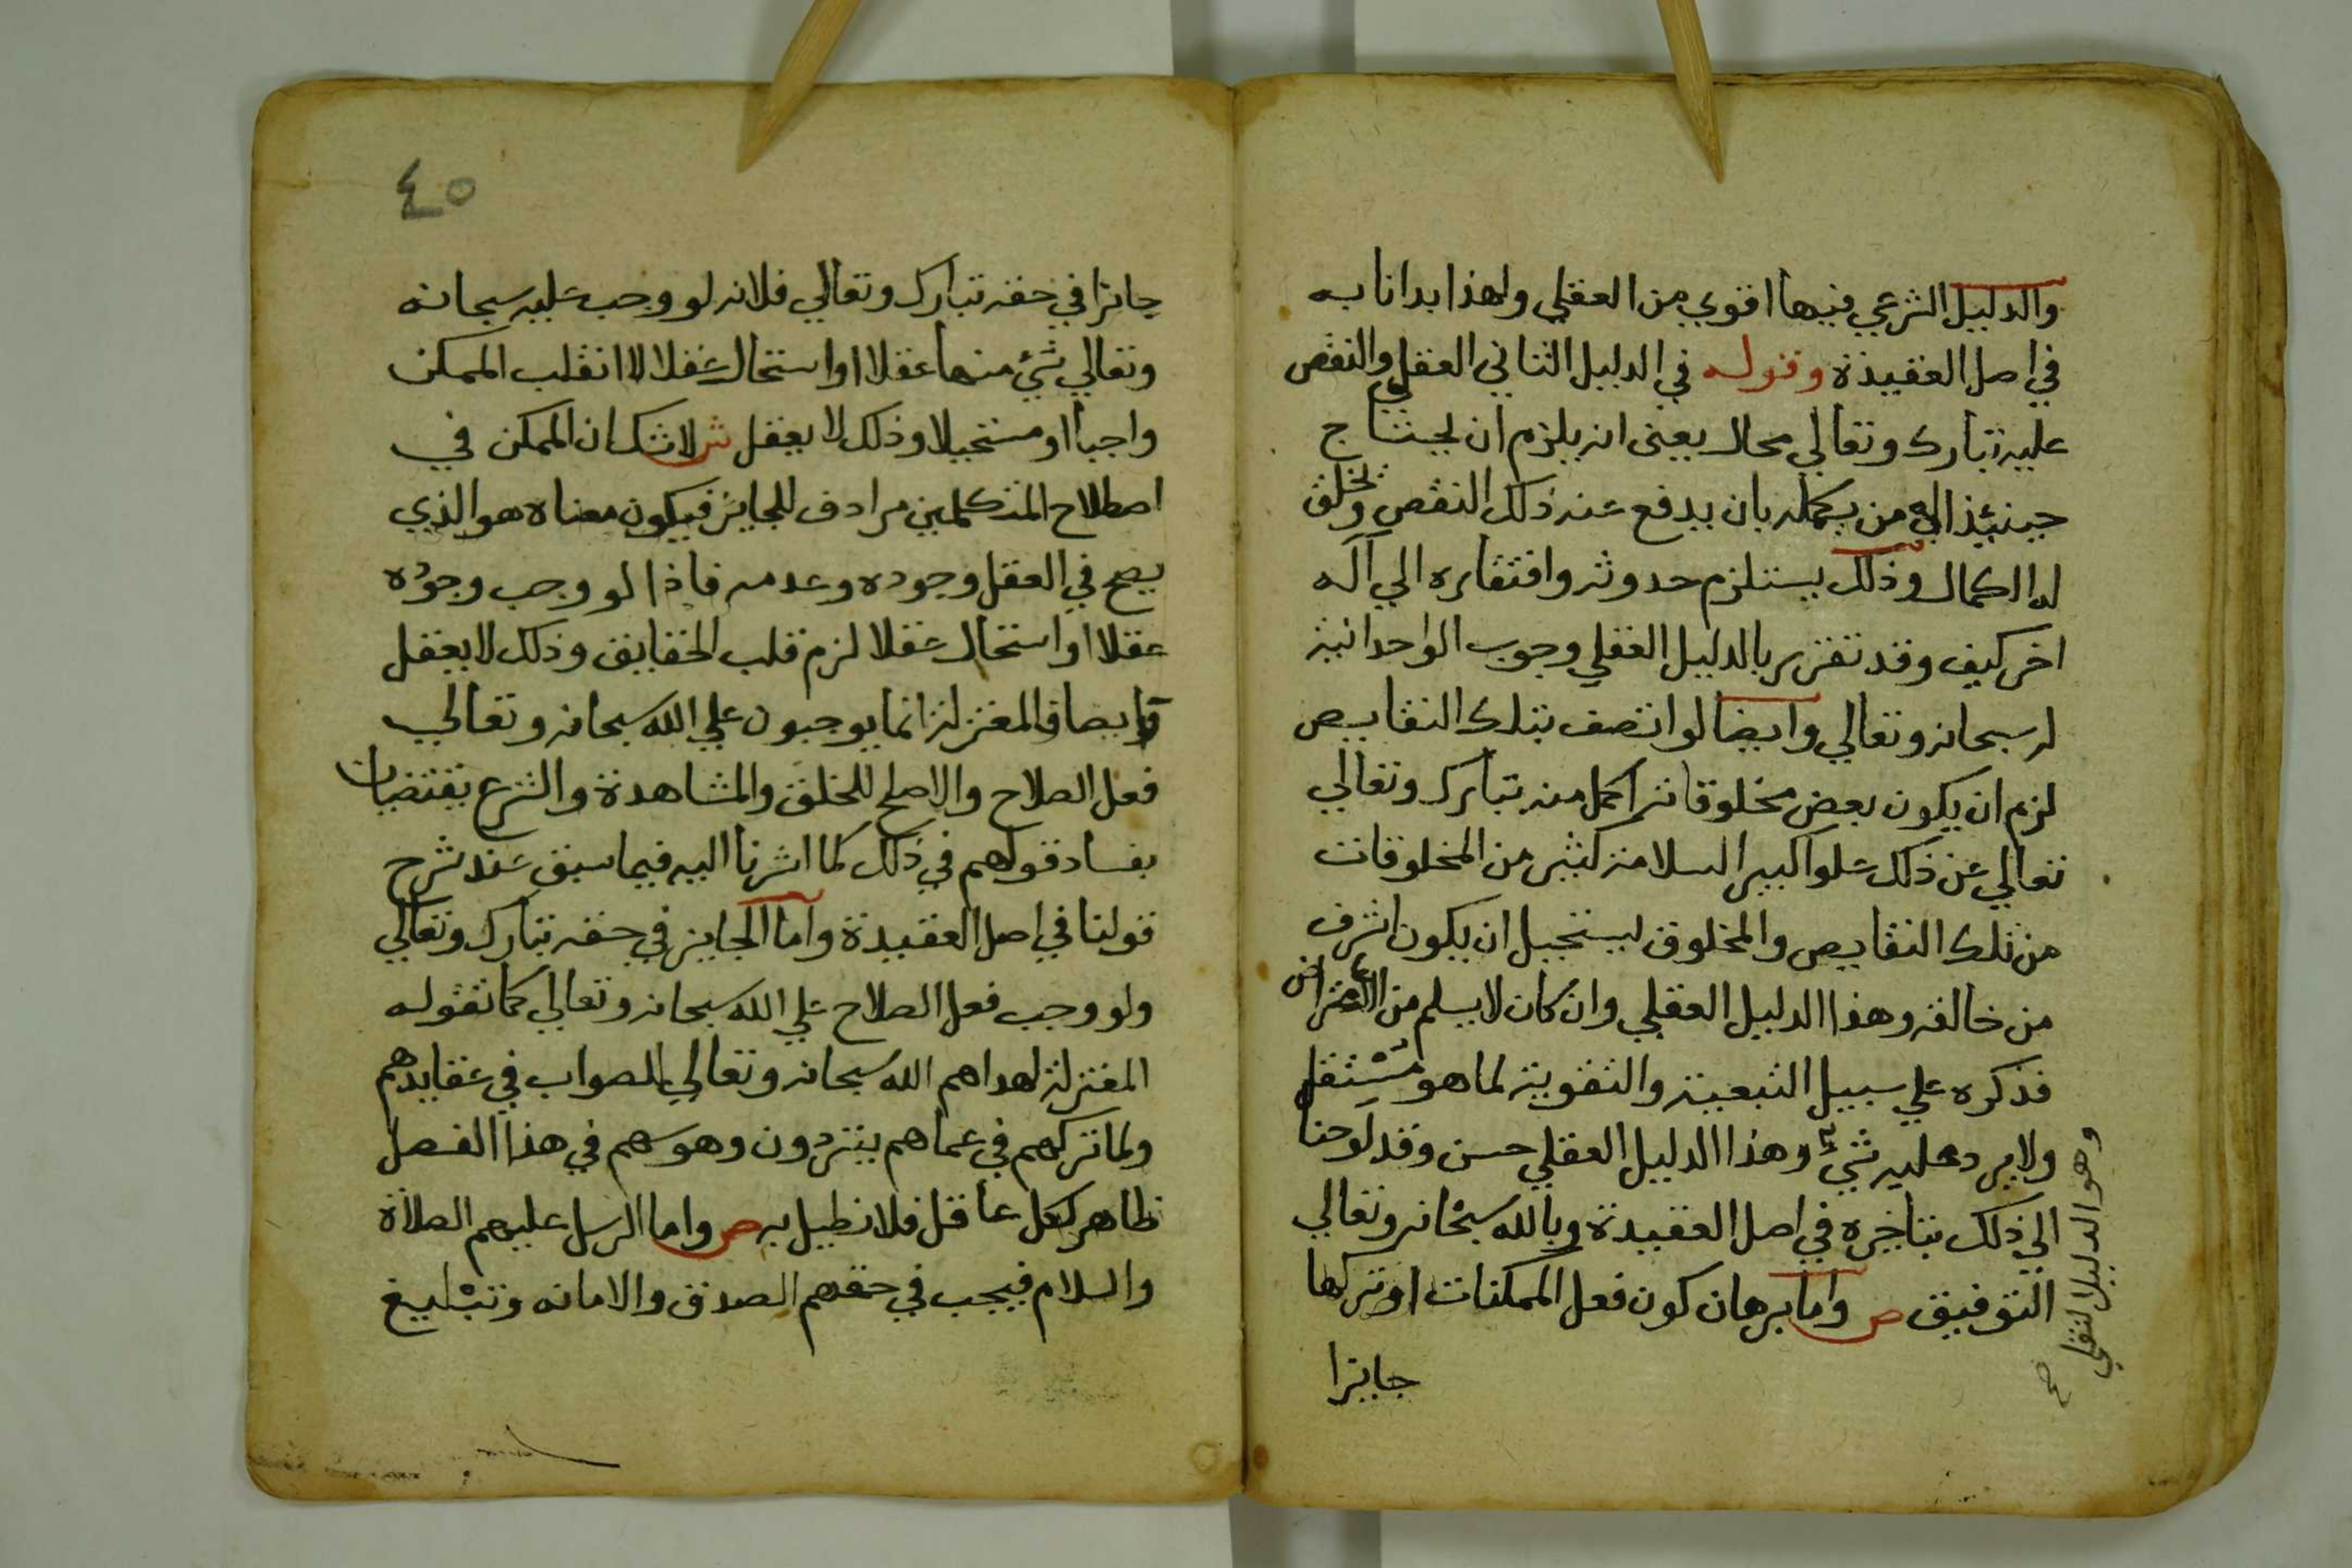 والدليل الشرعي فيها اقوي من العقلي ولهذا بدانا به
في اصل العقيدة وقوله في الدليل الثاني العقلي والنقص
عليه تبارك وتعالي محال يعني انه يلزم ان يحتاج
حينئذ الي من يكمله بان يدفع عنه ذلك النقص ويخلق
له الكمال وذلك يستلزم حدوثه وافتقاره الي اله
اخر كيف وقد تقرر بالدليل العقلي وجوب الواحدانية
له سبحانه وتعالي وايضا لو اتصف بتلك النقايص
لزم ان يكون بعض مخلوقاته اكمل منه تبارك وتعالي
تعالي عن ذلك علوا كبيرا لسلامة كثير من المخلوقات
من تلك النقايص والمخلوق يستحيل ان يكون اشرف
من خالقه وهذا الدليل العقلي وان كان لا يسلم من الاعتراض
فذكره علي سبيل التبعية والتقوية لما هو مستقل
وهو الدليل النقلي صح
ولا يرد عليه شيء وهذا الدليل العقلي حسن وقد لوحنا
الي ذلك بتاخيره في اصل العقيدة وبالله سبحانه وتعالي
التوفيق ص واما برهان كون فعل الممكنات او تركها
جايزا
٤٥
جايزا في حقه تبارك وتعالي فلانه لو وجب عليه سبحانه
وتعالي شيء منها عقلا او استحال عقلا لانقلب الممكن
واجبا او مستحيلا وذلك لا يعقل ش لا شك ان الممكن في
اصطلاح المتكلمين مرادف للجايز فيكون معناه هو الذي
يصح في العقل وجوده وعدمه فاذا لو وجب وجوده
عقلا او استحال عقلا لزم قلب الحقايق وذلك لا يعقل
وايضا فالمعتزلة انما يوجبون علي الله سبحانه وتعالي
فعل الصلاح والاصلح للخلق والمشاهدة والشرع يقتضيان
بفساد قولهم في ذلك كما اشرنا اليه فيما سبق عند شرح
قولنا في اصل العقيدة واما الجايز في حقه تبارك وتعالي
ولو وجب فعل الصلاح علي الله سبحانه وتعالي كما تقوله
المعتزلة لهداهم الله سبحانه وتعالي للصواب في عقايدهم
ولما تركهم في عماهم يترددون وهوسهم في هذا الفصل
ظاهر لكل عاقل فلا نطيل به ص واما الرسل عليهم الصلاة
والسلام فيجب في حقهم الصدق والامانه وتبليغ